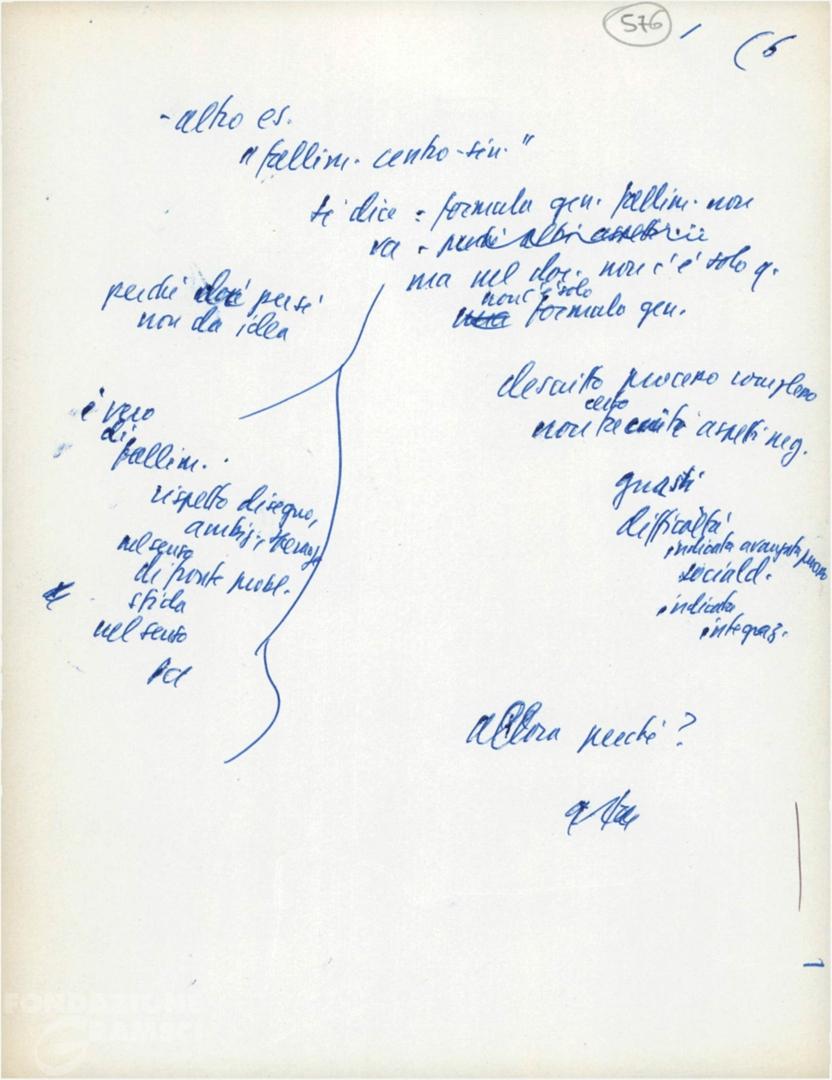 576 / (6
- altro es.
"fallim. centro-sin."
si dice: formula gen. fallim. non
va - perché altri aspetti
ma nel doc. non c'è solo q.
non c'è solo
formula gen.
descritto processo complesso
certo
non taciuti aspetti neg.
guasti
difficoltà
indicata avanzata processo
sociald.
indicata
integraz.
allora perché?
perché per sé
non dà idea
è vero
di
fallim..
rispetto disegno,
ambiz., speranza
nel senso
di fronte probl.
sfida
nel senso
FONDAZIONE
GRAMSCI